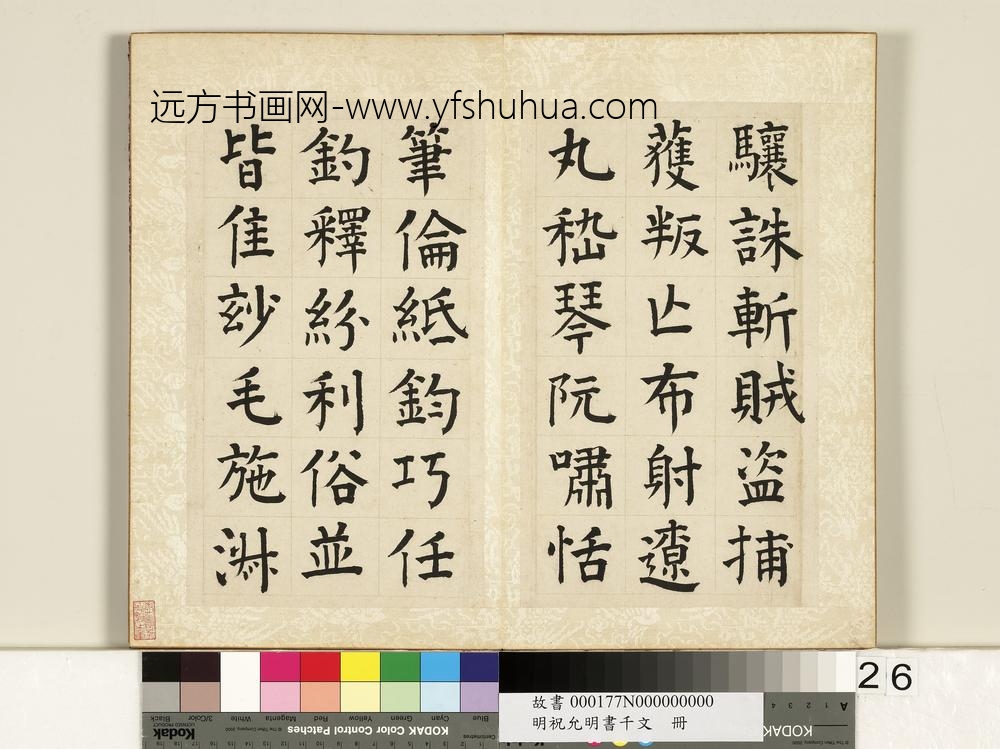 远方书画网-www.yfshuhua.com
驤誅斬賊盜捕
獲叛亾布射遼
丸嵇琴阮嘯恬
筆倫紙鈞巧任
釣釋紛利俗並
皆佳玅毛施淋
26
故書 000177N000000000
明祝允明書千文 冊
KODAK
KODAK Color Control Patches
Kodak
Blue
Cyan
Green
Yellow
Red
Magenta
White
3/Color
Black